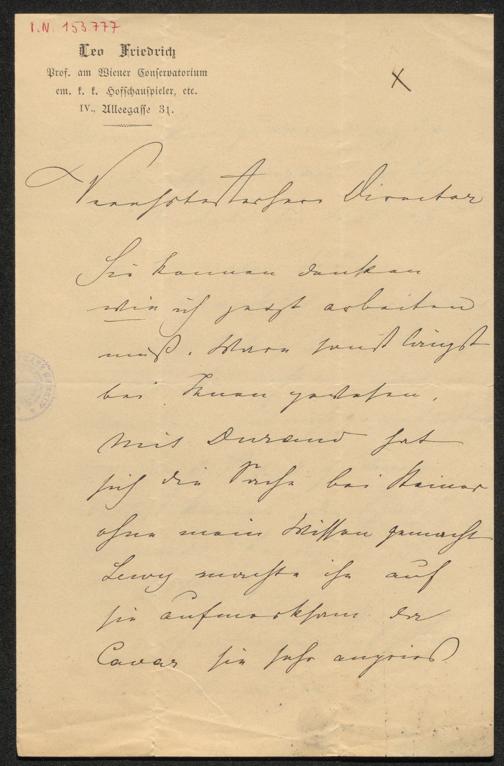 I.N. 153.777
Leo Friedrich
Prof. am Wiener Conservatorium
em. k. k. Hofschauspieler, etc.
IV., Alleegasse 31.
Director
Sie können denken
wie ich jetzt arbeiten
muß. Wäre sonst längst
bei Ihnen gewesen.
Mit Durand hat
sich die Sache bei Steiner
ohne mein Wissen gemacht
Lewy machte ihn auf
sie aufmerksam da
Cavar sie sehr anpries